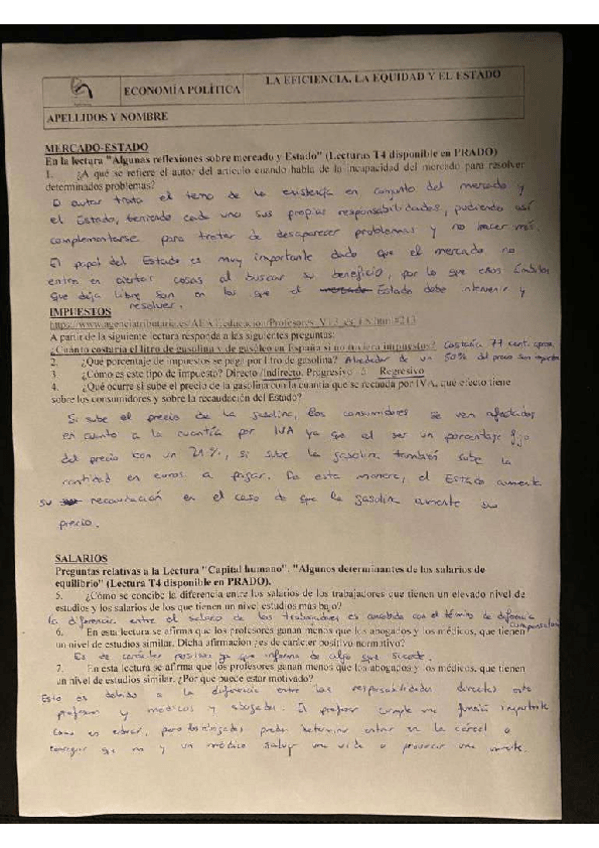 ECONOMÍA POLÍTICA
LA EFICIENCIA, LA EQUIDAD Y EL ESTADO
APELLIDOS Y NOMBRE
MERCADO-ESTADO
En la lectura "Algunas reflexiones sobre mercado y Estado" (Lecturas T4 disponible en PRADO)
1. ¿A qué se refiere el autor del artículo cuando habla de la incapacidad del mercado para resolver
determinados problemas?
El autor trata el tema de la existencia en conjunto del mercado y
el Estado, teniendo cada uno sus propias responsabilidades, pudiendo así
complementarse para tratar de desaparecer problemas y no hacer más.
El papel del Estado es muy importante dado que el mercado no
entra en ciertas cosas al buscar su beneficio, por lo que esos
que deja libre son en los que el Estado debe intervenir y
resolver.
IMPUESTOS
A partir de la siguiente lectura responda a las siguientes preguntas:
¿Cuánto costaría el litro de gasolina y de gasóleo en España si no tuviera impuestos? Costaría 77 cent. aprox.
2. ¿Qué porcentaje de impuestos se paga por litro de gasolina? Alrededor de un 50% del precio son
3. ¿Cómo es este tipo de impuesto? Directo /Indirecto. Progresivo Regresivo
4. ¿Qué ocurre si sube el precio de la gasolina con la cuantía que se recauda por IVA, qué efecto tiene
sobre los consumidores y sobre la recaudación del Estado?
Si sube el precio de la gasolina, los consumidores se ven afectados
en cuanto a la cuantía por IVA ya que al ser un porcentaje fijo
del precio con un 21%, si sube la gasolina también sube la
cantidad en euros a pagar. De esta manera, el Estado aumenta
su recaudación en el caso de que la gasolina aumente su
precio.
SALARIOS
Preguntas relativas a la Lectura "Capital humano". "Algunos determinantes de los salarios de
equilibrio" (Lectura T4 disponible en PRADO).
5. ¿Cómo se concibe la diferencia entre los salarios de los trabajadores que tienen un elevado nivel de
estudios y los salarios de los que tienen un nivel estudios más bajo?
La diferencia entre el salario de los trabajadores es concebida con el término de diferencia
6. En esta lectura se afirma que los profesores ganan menos que los abogados y los médicos, que tienen
un nivel de estudios similar. Dicha afirmación ¿es de carácter positivo normativo?
Es de carácter positivo ya que informa de algo que sucede.
7. En esta lectura se afirma que los profesores ganan menos que los abogados y los médicos, que tienen
un nivel de estudios similar. ¿Por qué puede estar motivado?
Esto es debido a la diferencia entre las responsabilidades directas entre
profesor y médicos y abogados. El profesor cumple una función importante
como es educar, pero los abogados pueden determinar entrar en la cárcel o
conseguir que no y un médico salvar una vida o provocar una muerte.